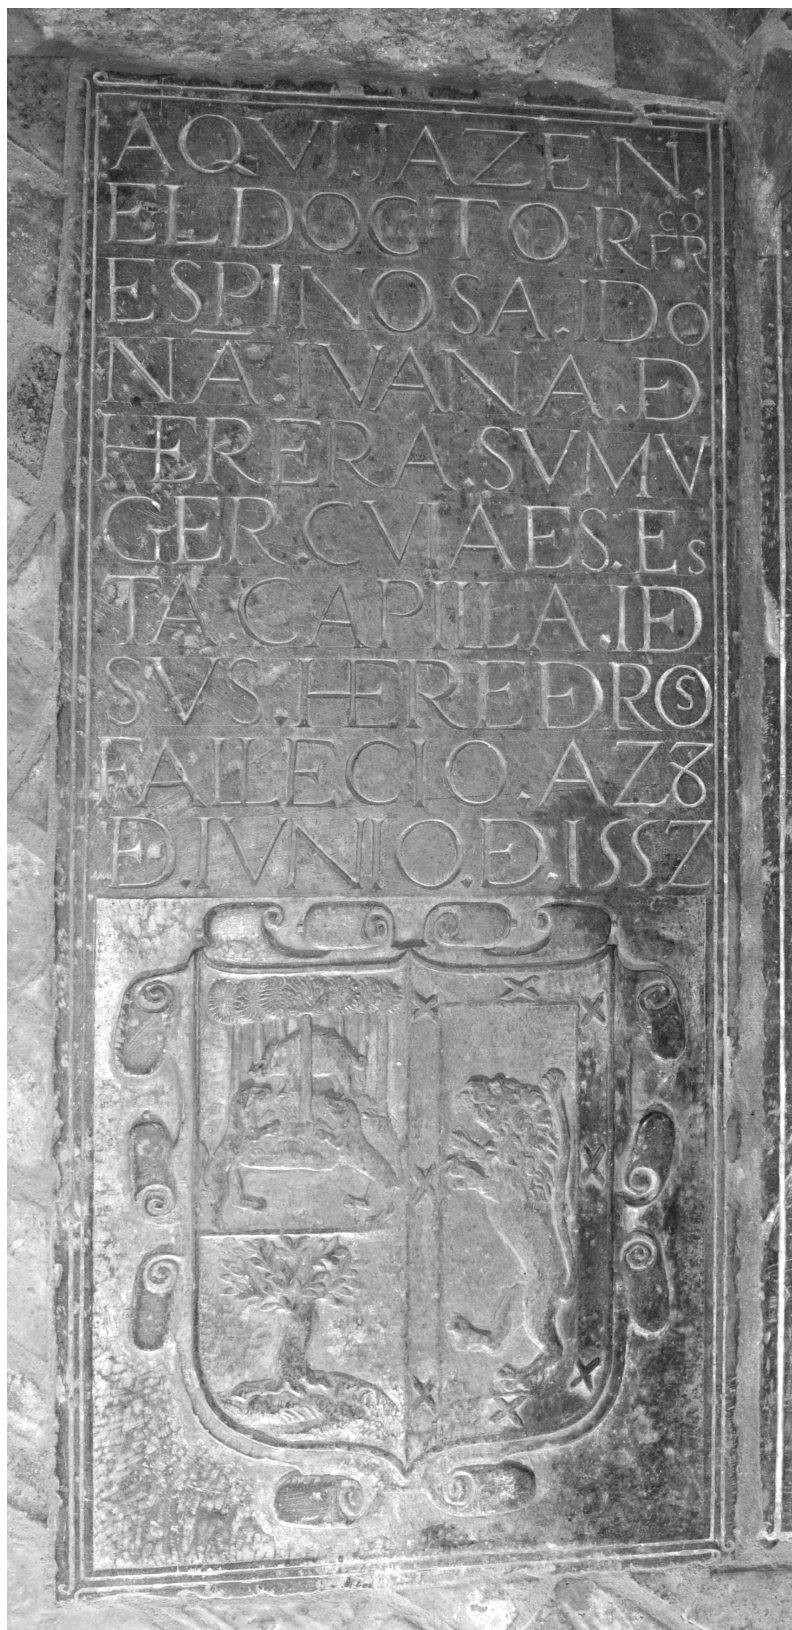 AQVI.JAZEN.
ELDOCTOR FRCO
ESPINOSA.IDO
NA.IVANA.D
HERERA.SVMV
GER.CVIAES.ES
TA CAPILLA.ID
SVS.HEREDROS
FALLECIO.AZ8
D.IVNIO.D.ISSZ